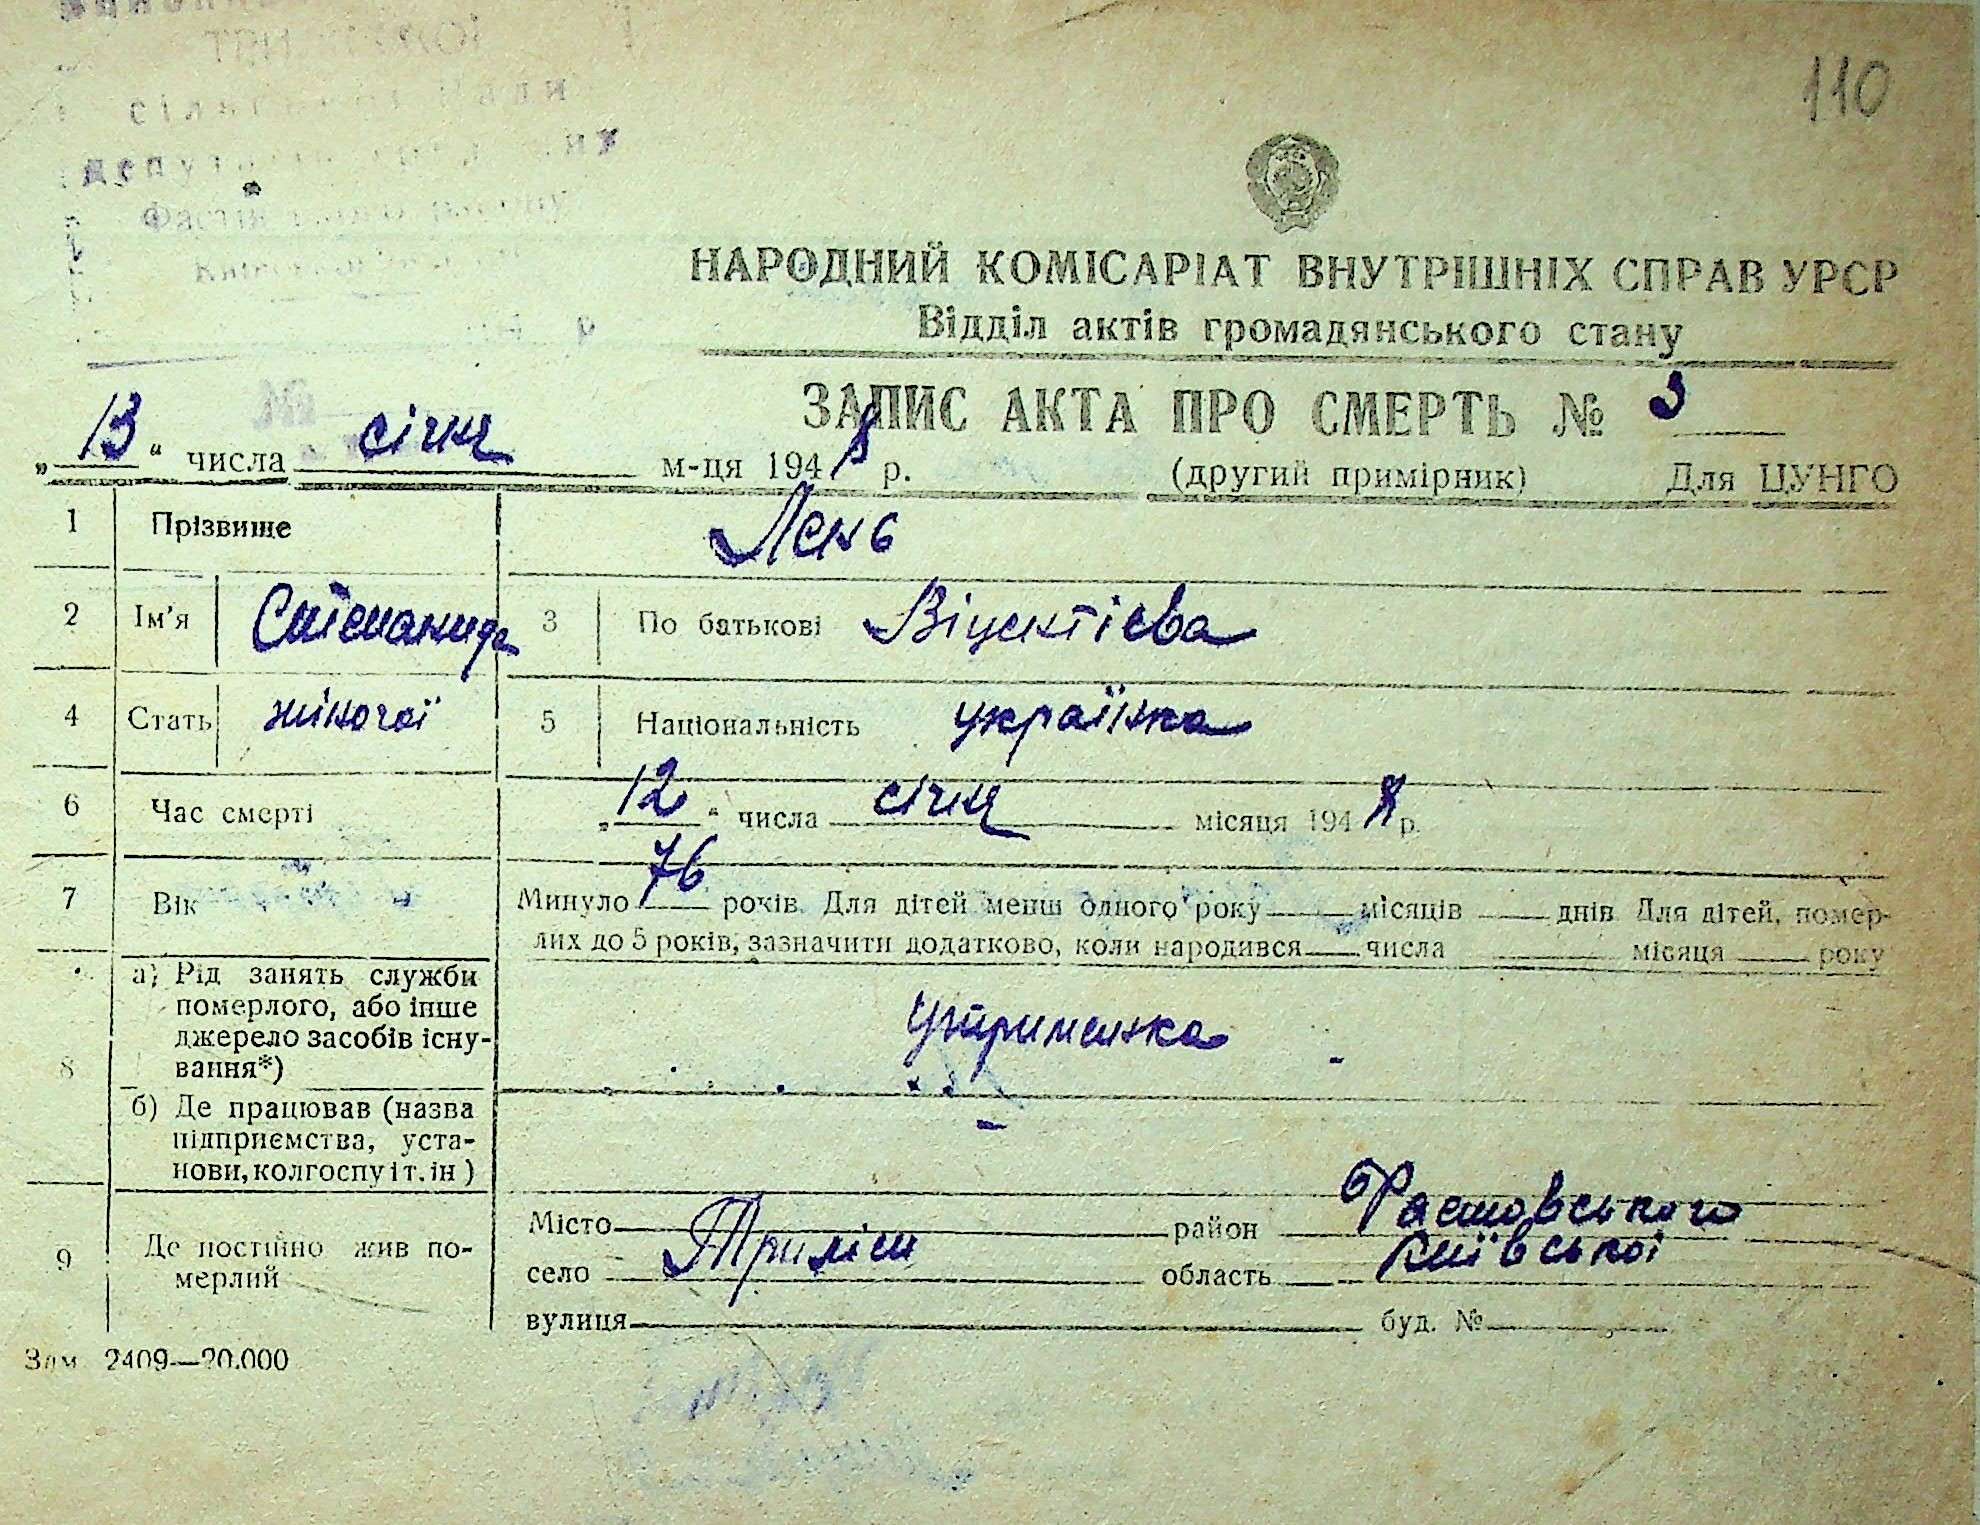 110
сільської Ради
депутатів
НАРОДНИЙ КОМІСАРІАТ ВНУТРІШНІХ СПРАВ УРСР
Відділ актів громадянського стану
ЗАПИС АКТА ПРО СМЕРТЬ № 3
„13“ числа січня м-ця 1948 р. (другий примірник) Для ЦУНГО
1 Прізвище Лень
2 Ім’я Степанида 3 По батькові Віцентієва
4 Стать жіночої 5 Національність українка
6 Час смерті „12“ числа січня місяця 1948 р.
7 Вік Минуло 76 років. Для дітей менш одного року місяців днів Для дітей, помер-
лих до 5 років, зазначити додатково, коли народився числа місяця року
8 а) Рід занять служби
померлого, або інше
джерело засобів існу-
вання*) утриманка -
б) Де працював (назва
підприємства, уста-
нови, колгоспу і т. ін ) -
9 Де постійно жив по-
мерлий
Місто район Фастовського
село Триліси область Київської
вулиця буд. №
Зам 2409—20.000